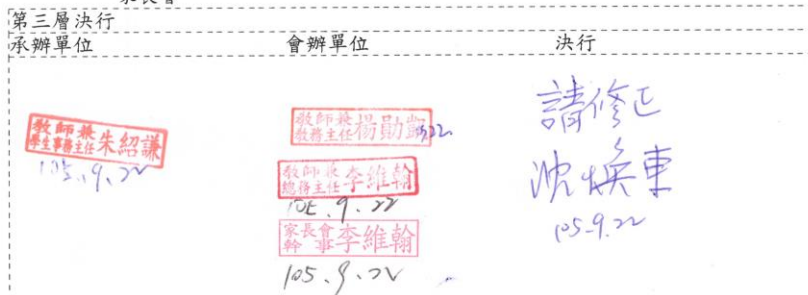 第三層決行
承辦單位 會辦單位 決行
教師兼學生事務主任朱紹謙
105.9.22
教師兼教務主任楊勛凱
9/22
教師兼總務主任李維翰
105.9.22
家長會幹事李維翰
105.9.22
請修正
沈煥東
105.9.22